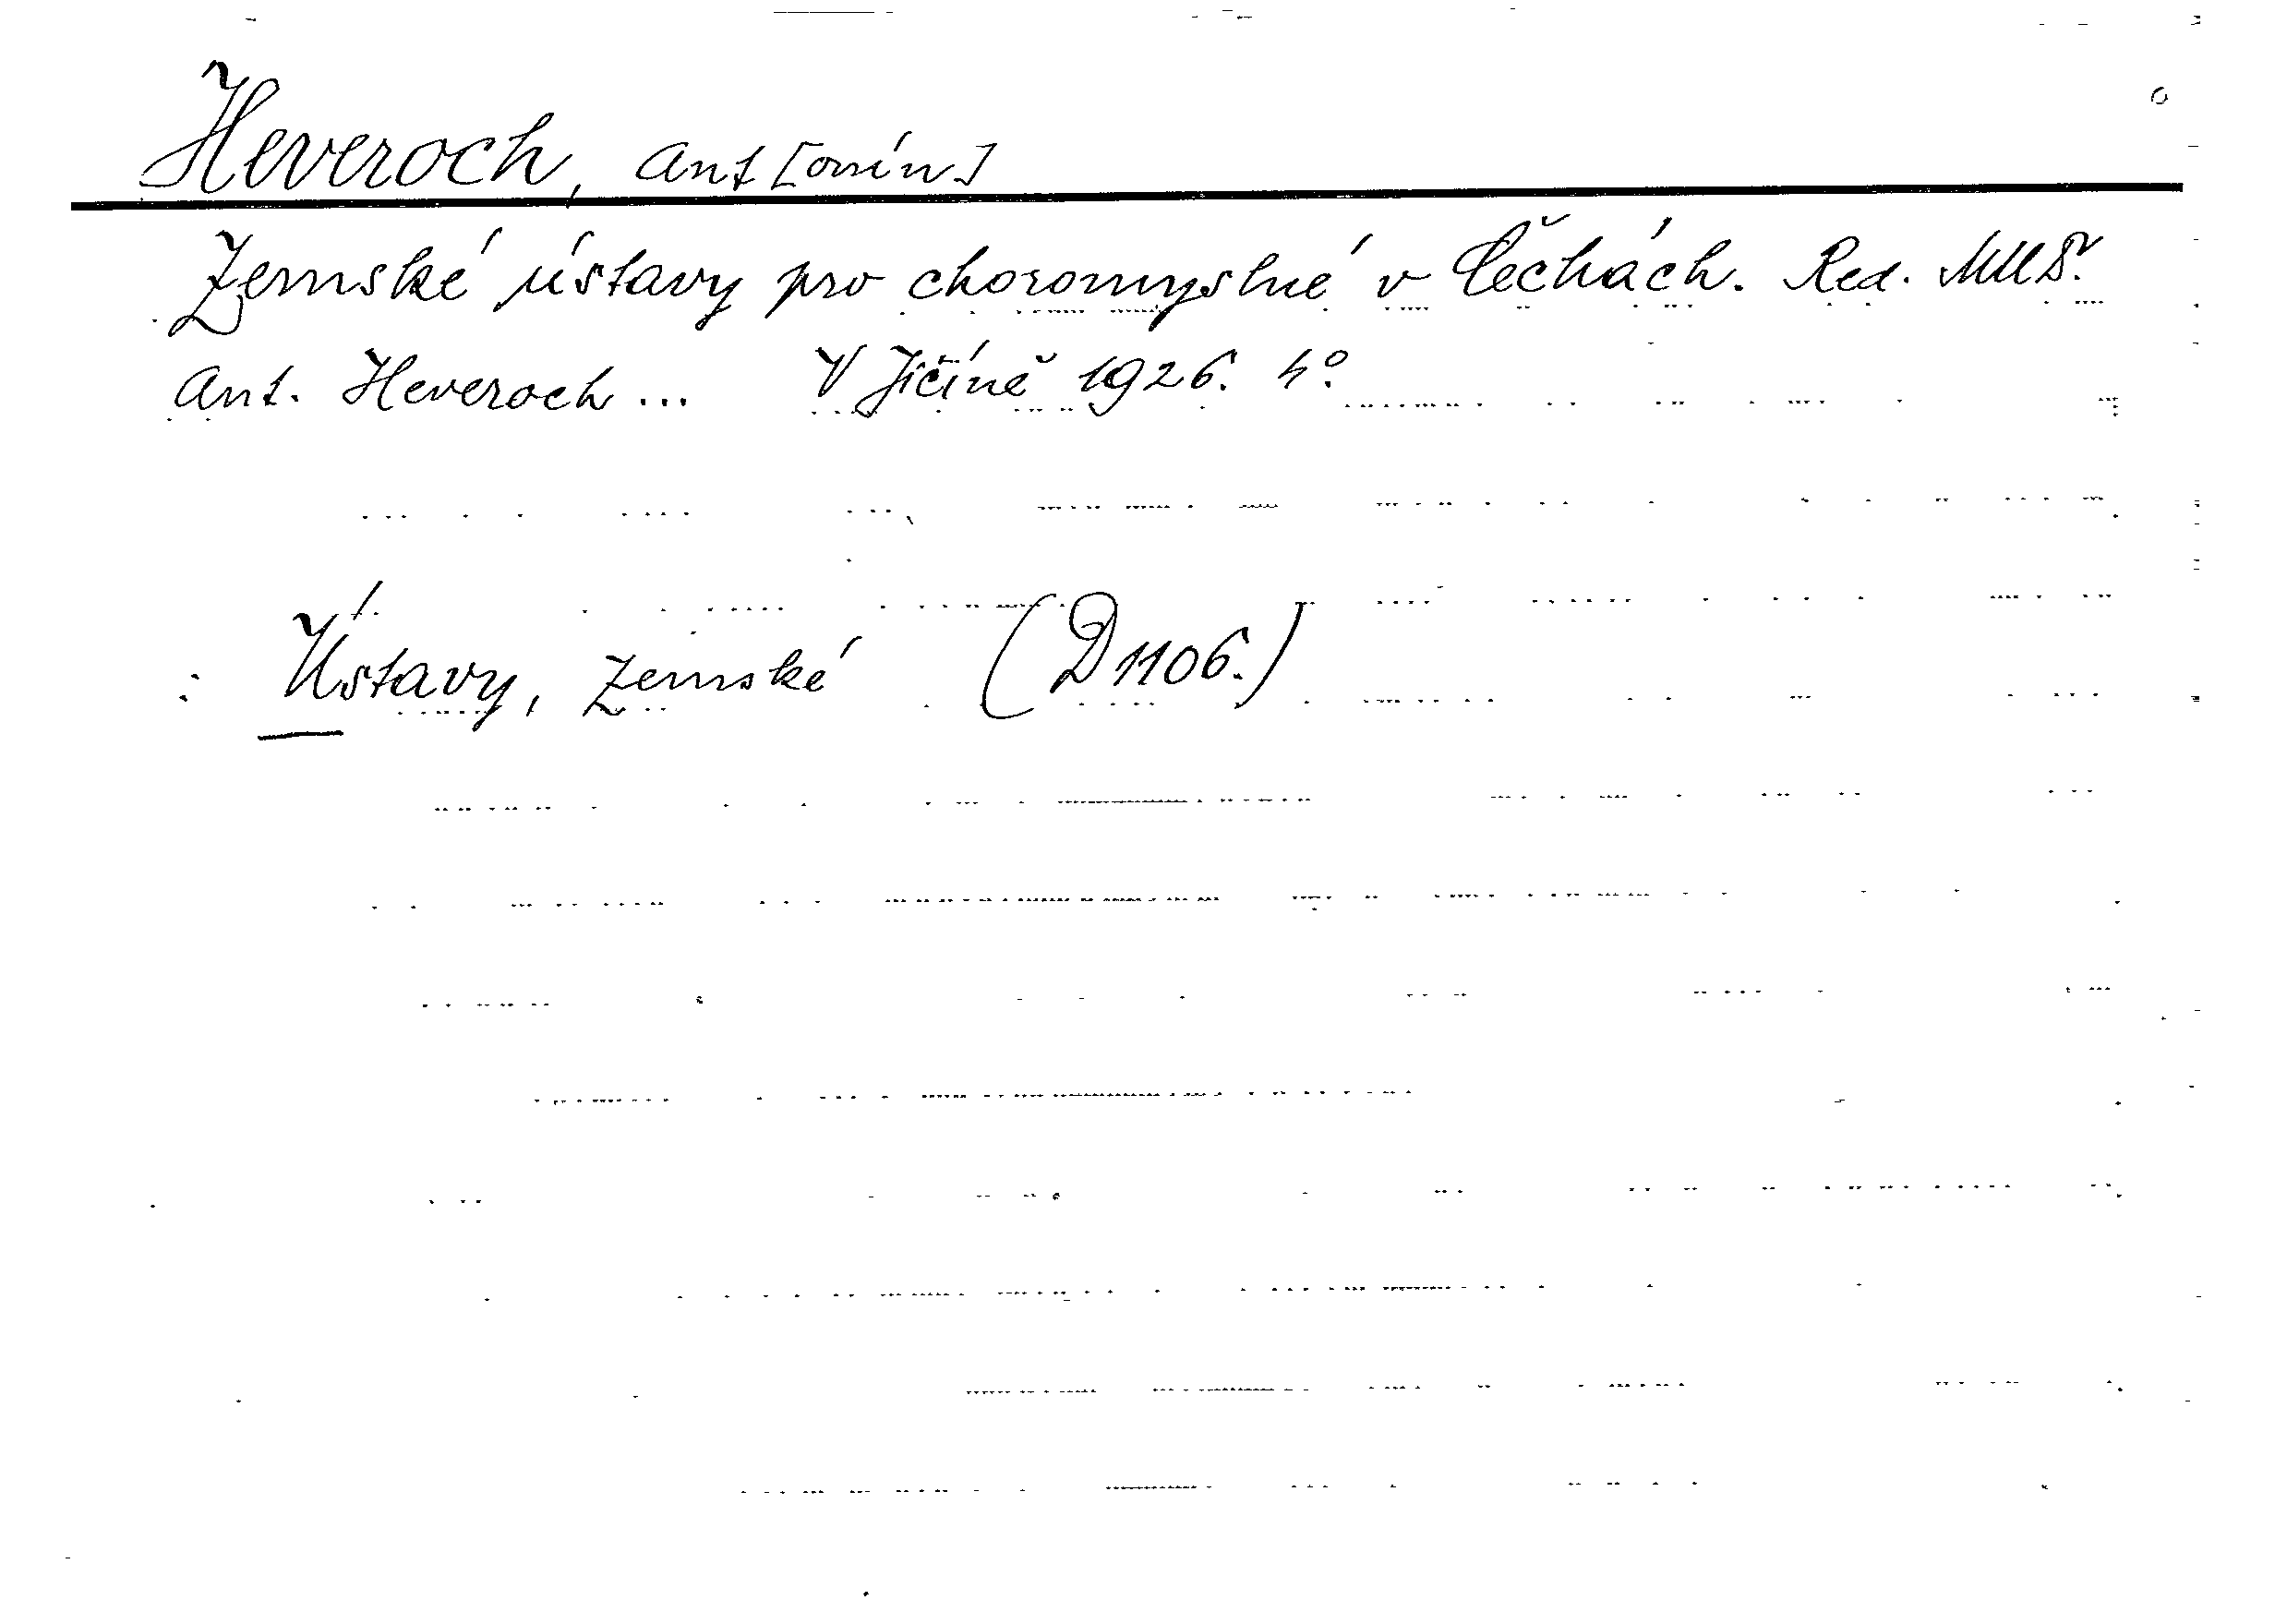 Heveroch, Ant[onín]
Zemské ústavy pro choromyslné v Čechách. Red. MUDr.
Ant. Heveroch... V Jičíně 1926. 4°.
: Ústavy, zemské (D 1106.)